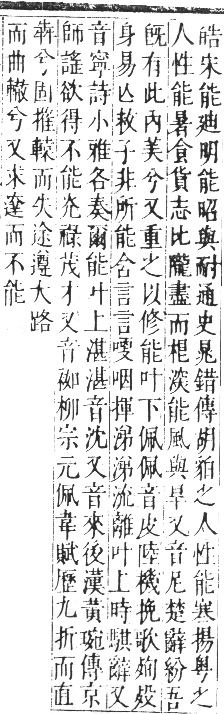 皓宋能廸明能昭與耐通史晁錯傳胡貊之人性能寒揚粤之
人性能暑食貨志比隴盡而柜淡能風與旱又音尼楚辭紛吾
旣有此内美兮又重之以修能叶下佩佩音皮陸機挽歌殉殁
身易亾救子非所能含言言哽咽揮涕涕流離叶上時騏辭又
音寧詩小雅各奏爾能叶上湛湛音沈又音來後漢黄琬傳京
師謠欲得不能光祿茂才又音柳柳宗元佩韋賦歷九折而直
犇兮固推轅而失途遵大路
而曲轍兮又求達而不能